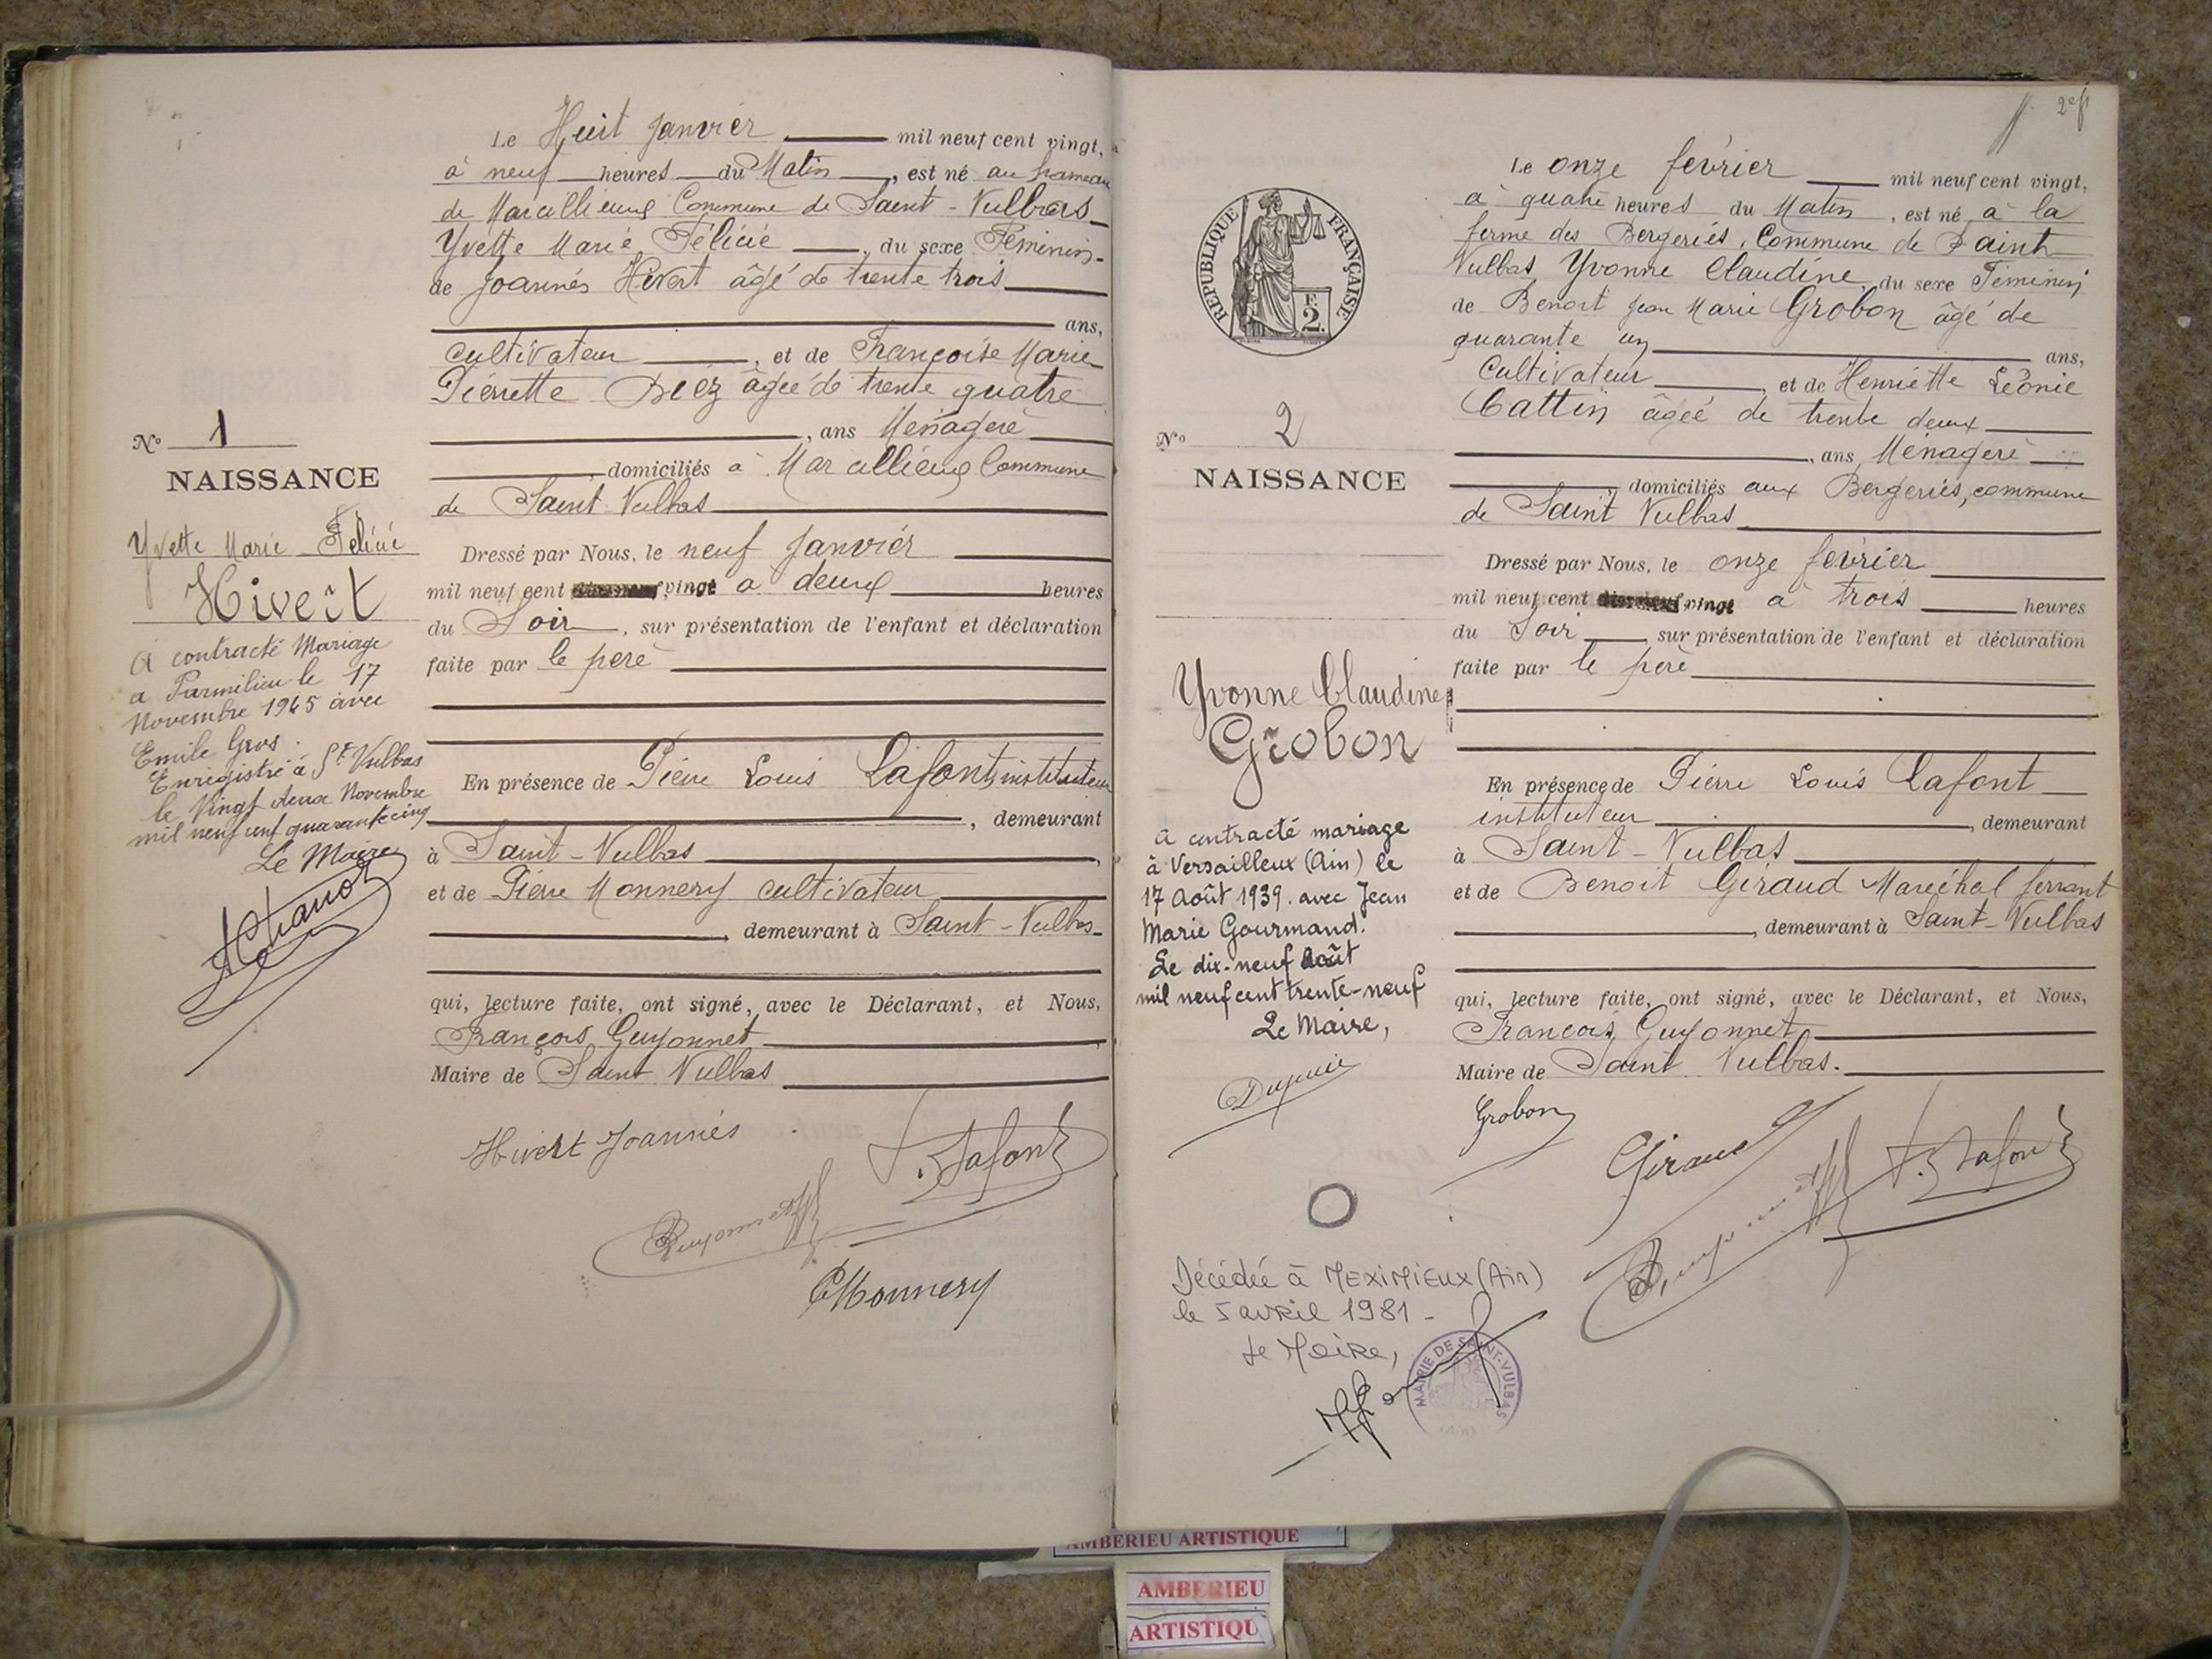 Le Huit Janvier mil neuf cent vingt,
à neuf heures du Matin, est né au hameau
de Marcillieux Commune de Saint-Vulbas
Yvette Marie Félicie, du sexe Féminin
de Joannès Hivert âgé de trente trois
ans,
cultivateur, et de Françoise Marie
Pierrette âgée de trente quatre
, ans Ménagère
, domiciliés à Marcillieux Commune
de Saint-Vulbas
No 1
NAISSANCE
Yvette Marie Félicie
Hivert
A contracté Mariage
à Parmilieu le 17
Novembre 1945 avec
Emile Gros.
Enregistré à St Vulbas
le Vingt deux Novembre
mil neuf cent quarante cinq
Le Maire
Dressé par Nous, le neuf Janvier
mil neuf cent vingt à deux heures
du Soir, sur présentation de l'enfant et déclaration
faite par le père
En présence de Pierre Louis Lafont, instituteur
, demeurant
à Saint-Vulbas,
et de Pierre Monnery cultivateur
, demeurant à Saint-Vulbas
qui, lecture faite, ont signé, avec le Déclarant, et Nous,
François Guyonnet
Maire de Saint Vulbas
Hivert Joannès
P. Lafont
Guyonnet
P Monnery
2e f
Le onze février mil neuf cent vingt,
à quatre heures du Matin, est né à la
ferme des Bergeries, Commune de Saint
Vulbas Yvonne Claudine, du sexe Féminin
de Benoit Jean Marie Grobon âgé de
quarante un ans,
Cultivateur, et de Henriette Léonie
Cattin âgée de trente deux
, ans Ménagère
, domiciliés aux Bergeries, commune
de Saint Vulbas
RÉPUBLIQUE FRANÇAISE
F.
2.
No 2
NAISSANCE
Yvonne Claudine
Grobon
a contracté mariage
à Versailleux (Ain) le
17 Août 1939. avec Jean
Marie Gourmand.
Le dix-neuf Août
mil neuf cent trente-neuf
Le Maire,
Décédée à MEXIMIEUX (Ain)
le 5 avril 1981 -
Le Maire,
MAIRIE DE SAINT-VULBAS
(Ain)
Dressé par Nous, le onze février
mil neuf cent vingt à trois heures
du Soir, sur présentation de l'enfant et déclaration
faite par le père
En présence de Pierre Louis Lafont
instituteur, demeurant
à Saint-Vulbas
et de Benoit Giraud Maréchal ferrant
, demeurant à Saint-Vulbas
qui, lecture faite, ont signé, avec le Déclarant, et Nous,
François Guyonnet
Maire de Saint Vulbas.
Grobon
Giraud
P. Lafont
Guyonnet
AMBERIEU ARTISTIQUE
AMBERIEU
ARTISTIQU